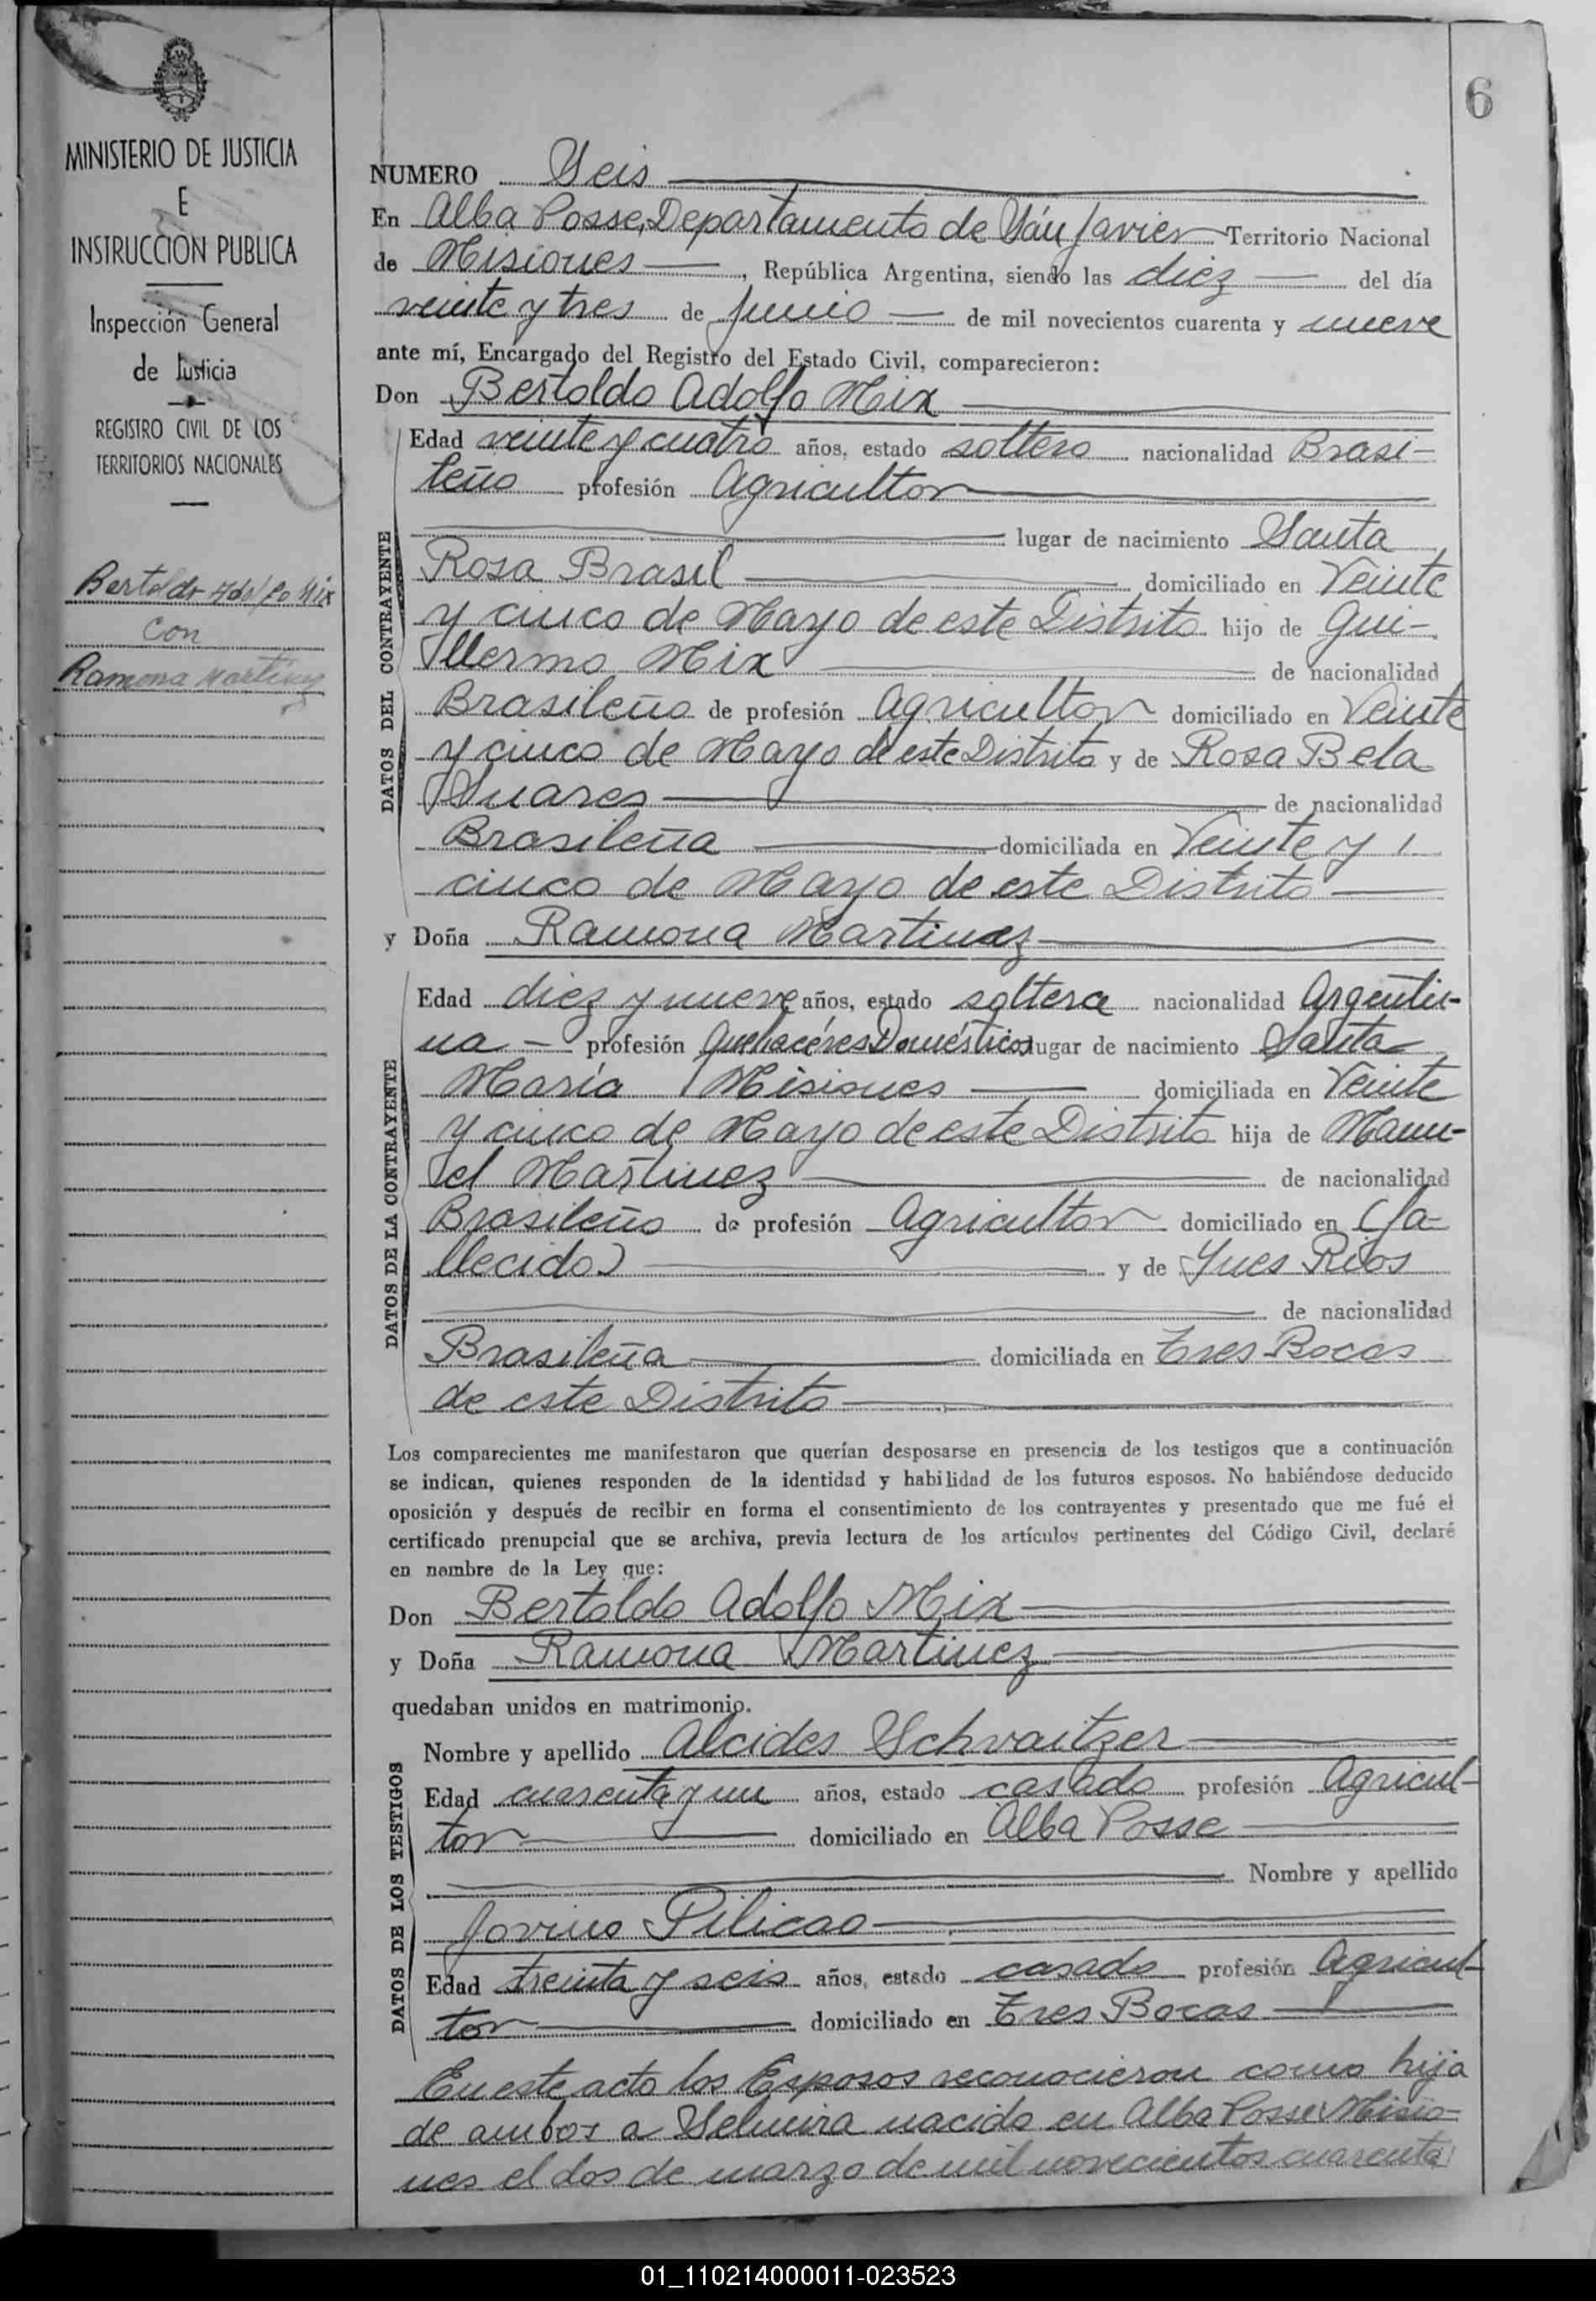 6
MINISTERIO DE JUSTICIA
E
INSTRUCCION PUBLICA
Inspección General
de Justicia
REGISTRO CIVIL DE LOS
TERRITORIOS NACIONALES
Bertoldo Adolfo Mix
con
Ramona Martinez
NUMERO Seis
En Alba Posse, Departamento de Sán Javier Territorio Nacional
de Misiones, República Argentina, siendo las diez del día
veinte y tres de junio de mil novecientos cuarenta y nueve
ante mí, Encargado del Registro del Estado Civil, comparecieron:
Don Bertoldo Adolfo Mix
DATOS DEL CONTRAYENTE
Edad veinte y cuatro años, estado soltero nacionalidad Brasi-
leño profesión Agricultor
lugar de nacimiento Santa
Rosa Brasil domiciliado en Veinte
y cinco de Mayo de este Distrito hijo de Gui-
llermo Mix de nacionalidad
Brasileño de profesión Agricultor domiciliado en Veinte
y cinco de Mayo de este Distrito y de Rosa Bela
Suares de nacionalidad
Brasileña domiciliada en Veinte y
cinco de Mayo de este Distrito
y Doña Ramona Martinez
DATOS DE LA CONTRAYENTE
Edad diez y nueve años, estado soltera nacionalidad Argenti-
na - profesión Quehacéres Doméstico lugar de nacimiento Santa
María Misiones domiciliada en Veinte
y cinco de Mayo de este Distrito hija de Manu-
el Martinez de nacionalidad
Brasileño de profesión Agricultor domiciliado en (fa-
llecido) y de Ynes Rios
de nacionalidad
Brasileña domiciliada en Tres Bocas
de este Distrito
Los comparecientes me manifestaron que querían desposarse en presencia de los testigos que a continuación
se indican, quienes responden de la identidad y habilidad de los futuros esposos. No habiéndose deducido
oposición y después de recibir en forma el consentimiento de los contrayentes y presentado que me fué el
certificado prenupcial que se archiva, previa lectura de los artículos pertinentes del Código Civil, declaré
en nombre de la Ley que:
Don Bertoldo Adolfo Mix
y Doña Ramona Martinez
quedaban unidos en matrimonio.
DATOS DE LOS TESTIGOS
Nombre y apellido Alcides Schvaitzer
Edad cuarenta y un años, estado casado profesión Agricul-
tor domiciliado en Alba Posse
Nombre y apellido
Jovino Pilicao
Edad treinta y seis años, estado casado profesión Agricul-
tor domiciliado en Tres Bocas
En este acto los Esposos reconocieron como hija
de ambos a Selmira nacida en Alba Posse Misio-
nes el dos de marzo de mil novecientos cuarenta
01_110214000011-023523